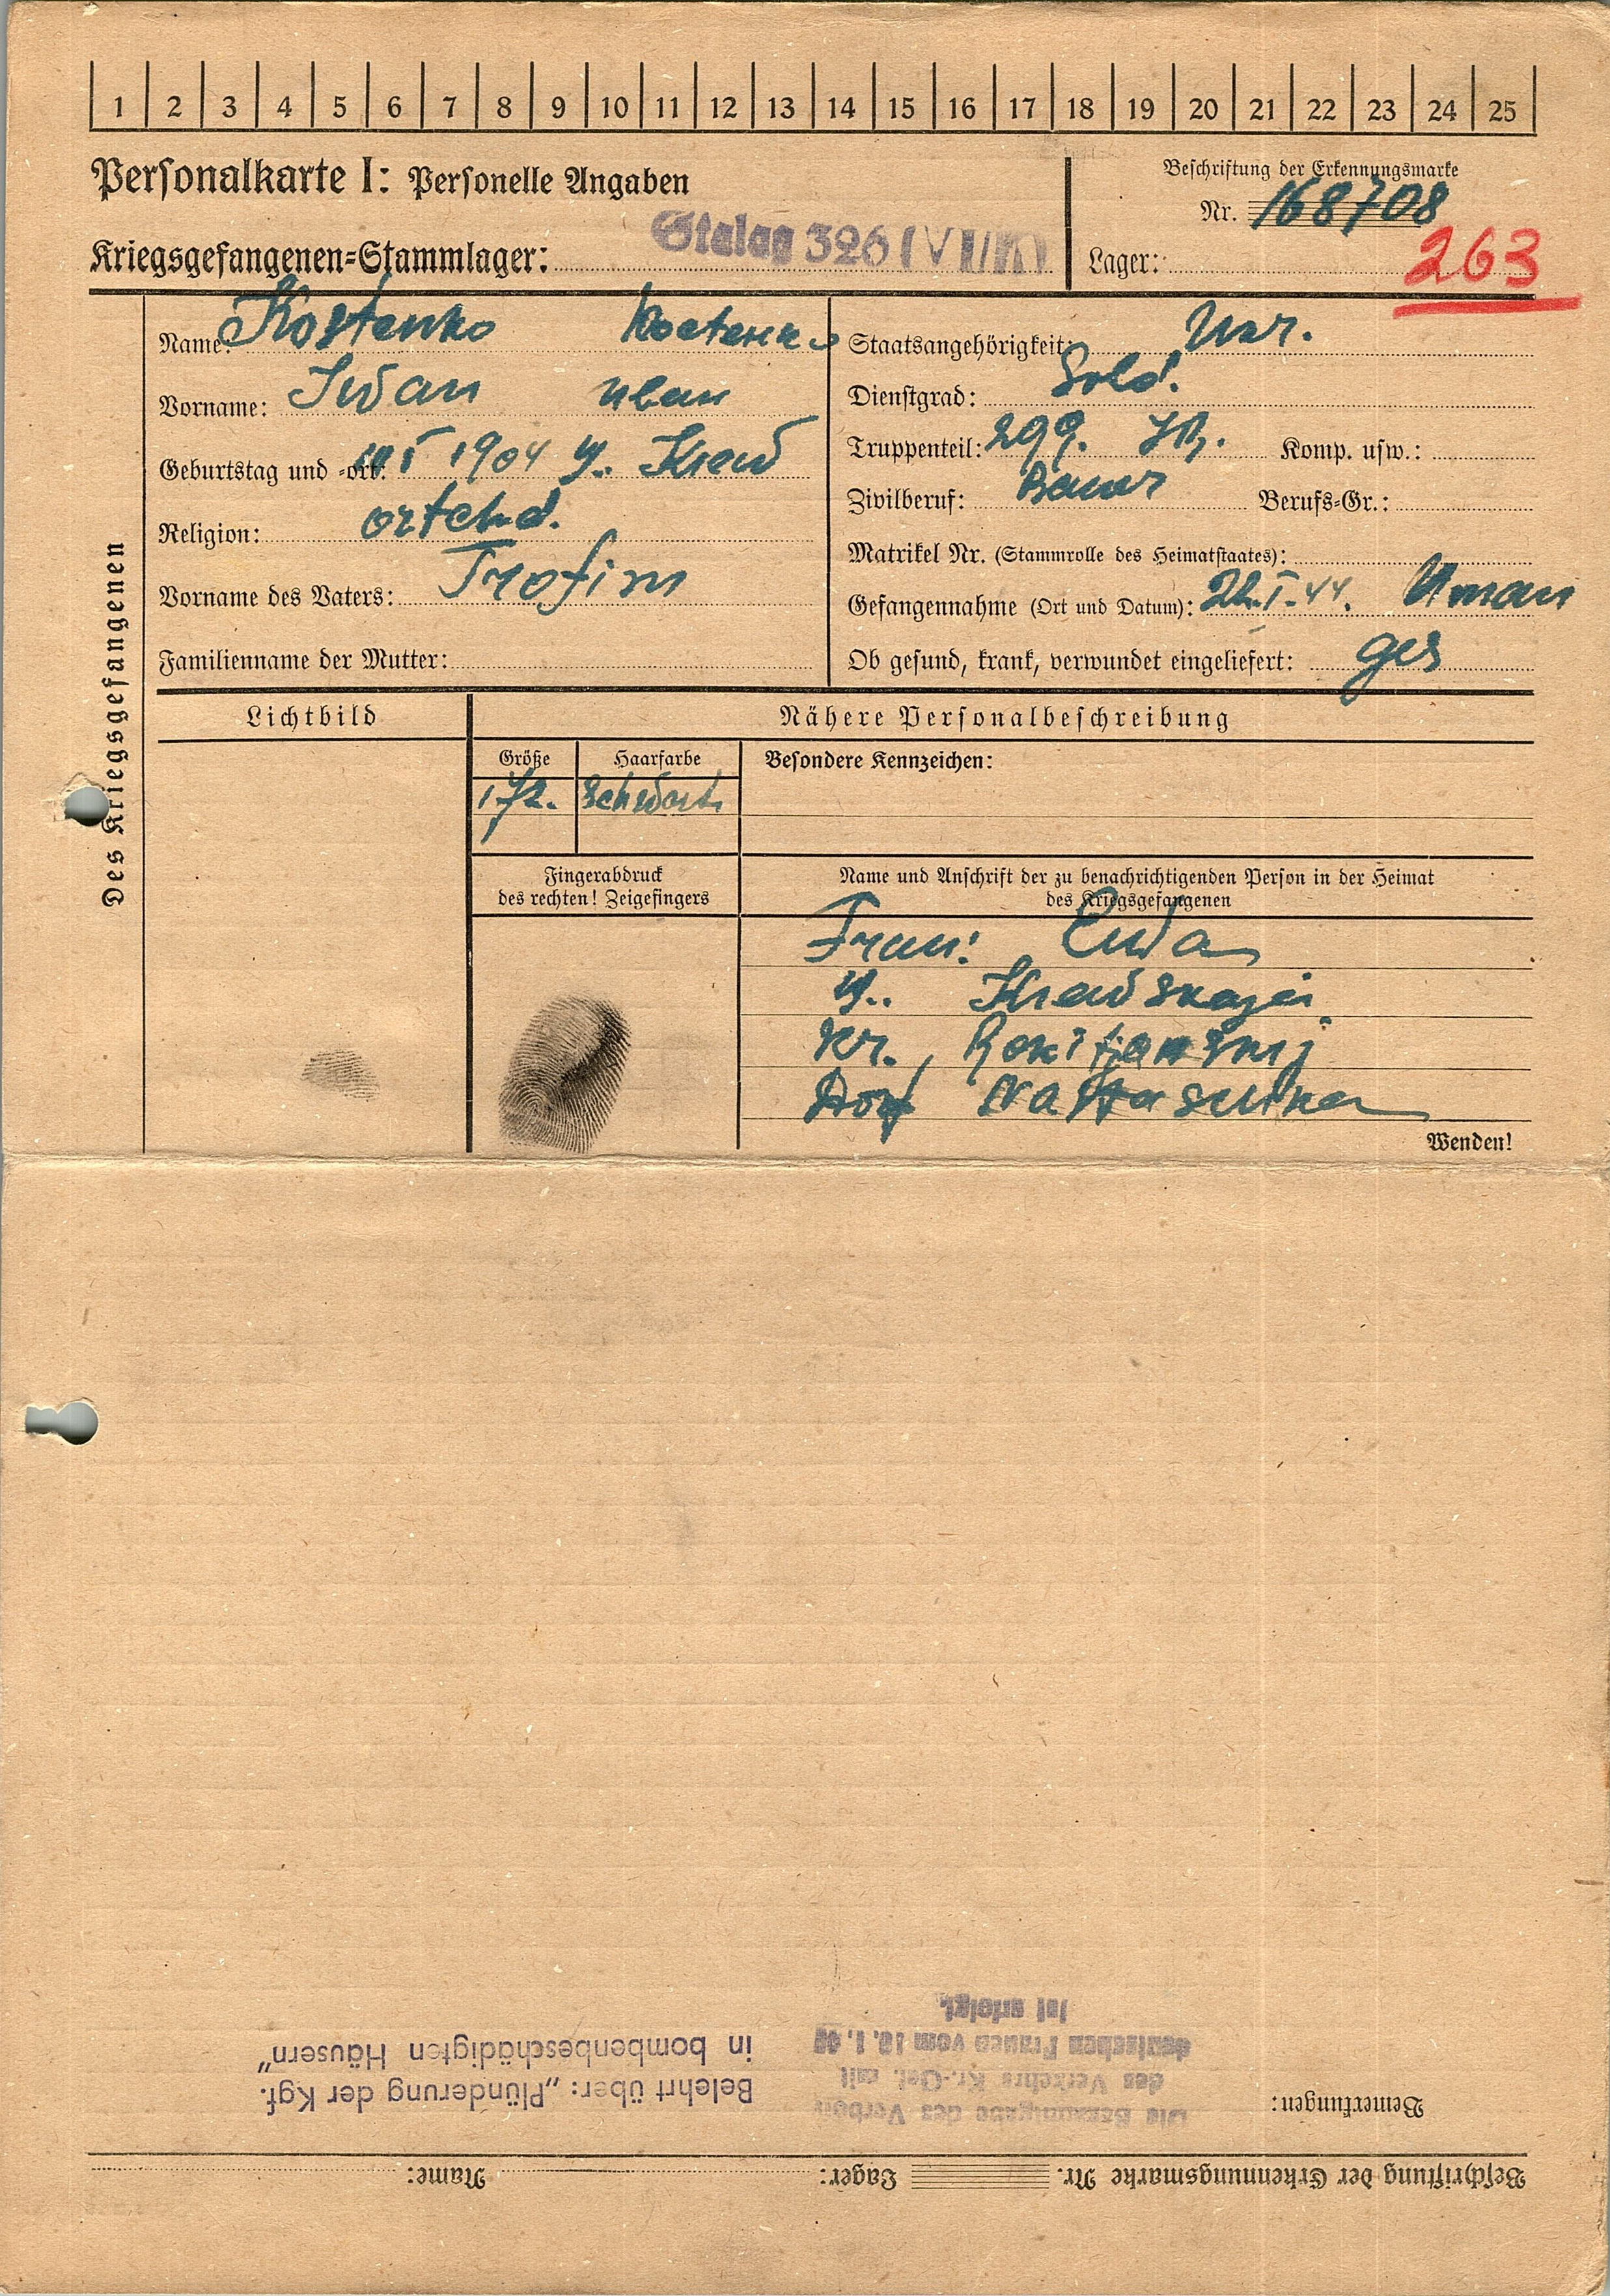 1 2 3 4 5 6 7 8 9 10 11 12 13 14 15 16 17 18 19 20 21 22 23 24 25
Personalkarte I: Personelle Angaben
Kriegsgefangenen-Stammlager: Stalag 326 (VI/K)
Beschriftung der Erkennungsmarke
Nr. 168708
Lager: 263
Des Kriegsgefangenen
Name: Kostenko Костенко
Vorname: Iwan Иван
Geburtstag und -ort: 1904 g. Kiew
Religion: ortchd.
Vorname des Vaters: Trofim
Familienname der Mutter:
Staatsangehörigkeit: Ukr.
Dienstgrad: Sold.
Truppenteil: 299. Komp. usw.:
Zivilberuf: Bauer Berufs-Gr.:
Matrikel Nr. (Stammrolle des Heimatstaates):
Gefangennahme (Ort und Datum): 22.I.44. Uman
Ob gesund, krank, verwundet eingeliefert: ges
Lichtbild
Nähere Personalbeschreibung
Größe Haarfarbe Besondere Kennzeichen:
1.72. Schwarts
Fingerabdruck
des rechten! Zeigefingers
Name und Anschrift der zu benachrichtigenden Person in der Heimat
des Kriegsgefangenen
Frau: Ewa
g. Kiewskaja
Kr. Rokitianskij
Dorf Nastaschka
Wenden!
Beschriftung der Erkennungsmarke Nr. Lager: Name:
Bemerkungen:
Die Bekanntgabe des Verbots
des Verkehrs Kr.-Gef. mit
deutschen Frauen vom 10. 1. 40
ist erfolgt.
Belehrt über: „Plünderung der Kgf.
in bombenbeschädigten Häusern"